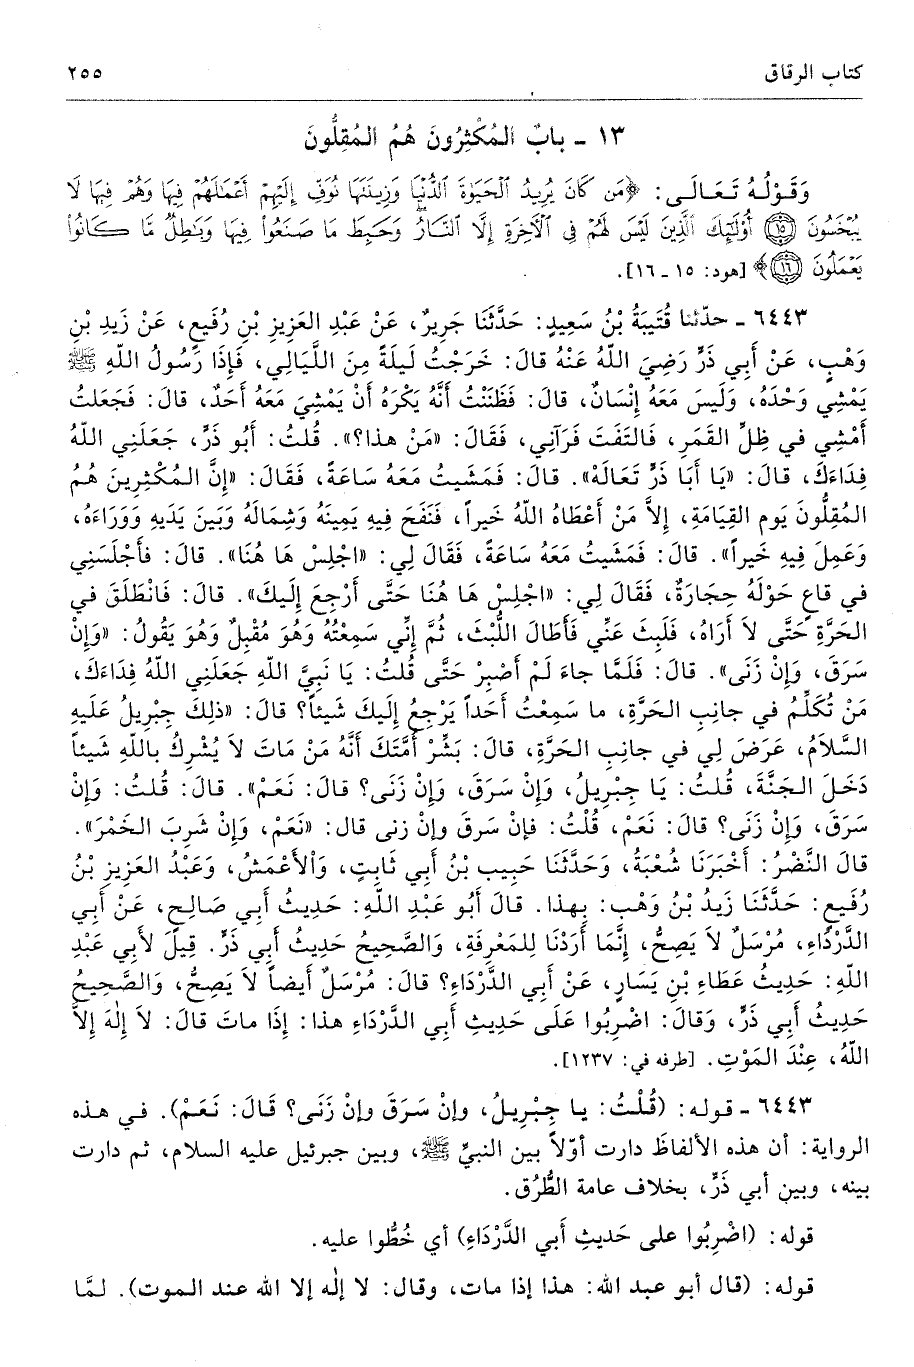 كتاب الرقاق ٢٥٥
١٣ ـ بابٌ المُكْثِرُونَ هُمُ المُقِلُّونَ
وَقَوْلُهُ تَعَالَى: ﴿مَن كَانَ يُرِيدُ ٱلْحَيَوٰةَ ٱلدُّنْيَا وَزِينَتَهَا نُوَفِّ إِلَيْهِمْ أَعْمَٰلَهُمْ فِيهَا وَهُمْ فِيهَا لَا
يُبْخَسُونَ ۝١٥ أُوْلَٰٓئِكَ ٱلَّذِينَ لَيْسَ لَهُمْ فِى ٱلْأَخِرَةِ إِلَّا ٱلنَّارُ ۖ وَحَبِطَ مَا صَنَعُوا۟ فِيهَا وَبَٰطِلٌ مَّا كَانُوا۟
يَعْمَلُونَ ۝١٦﴾ [هود: ١٥ ـ ١٦].
٦٤٤٣ ـ حدّثنا قُتَيبَةُ بْنُ سَعِيدٍ: حَدَّثَنَا جَرِيرٌ، عَنْ عَبْدِ العَزِيزِ بْنِ رُفَيعٍ، عَنْ زَيدِ بْنِ
وَهْبٍ، عَنْ أَبِي ذَرٍّ رَضِيَ اللّهُ عَنْهُ قالَ: خَرَجْتُ لَيلَةً مِنَ اللَّيَالِي، فَإِذَا رَسُولُ اللّهِ ﷺ
يَمْشِي وَحْدَهُ، وَلَيسَ مَعَهُ إِنْسَانٌ، قالَ: فَظَنَنْتُ أَنَّهُ يَكْرَهُ أَنْ يَمْشِيَ مَعَهُ أَحَدٌ، قالَ: فَجَعَلتُ
أَمْشِي في ظِلِّ القَمَرِ، فَالتَفَتَ فَرَآنِي، فَقَالَ: «مَنْ هذا؟». قُلتُ: أَبُو ذَرٍّ، جَعَلَنِي اللّهُ
فِدَاءَكَ، قالَ: «يَا أَبَا ذَرٍّ تَعَالَهْ». قالَ: فَمَشَيتُ مَعَهُ سَاعَةً، فَقَالَ: «إِنَّ المُكْثِرِينَ هُمُ
المُقِلُّونَ يَوم القِيَامَةِ، إِلاَّ مَنْ أَعْطَاهُ اللّهُ خَيراً، فَنَفَحَ فِيهِ يَمِينَهُ وَشِمَالَهُ وَبَينَ يَدَيهِ وَوَرَاءَهُ،
وَعَمِلَ فِيهِ خَيراً». قالَ: فَمَشَيتُ مَعَهُ سَاعَةً، فَقَالَ لِي: «اجْلِسْ هَا هُنَا». قالَ: فأَجْلَسَنِي
في قاعٍ حَوْلَهُ حِجَارَةٌ، فَقَالَ لِي: «اجْلِسْ هَا هُنَا حَتَّى أَرْجِعَ إِلَيكَ». قالَ: فَانْطَلَقَ في
الحَرَّةِ حَتَّى لاَ أَرَاهُ، فَلَبِثَ عَنِّي فَأَطَالَ اللُّبْثَ، ثُمَّ إِنِّي سَمِعْتُهُ وَهُوَ مُقْبِلٌ وَهُوَ يَقُولُ: «وَإِنْ
سَرَقَ، وَإِنْ زَنَى». قالَ: فَلَمَّا جاءَ لَمْ أَصْبِرْ حَتَّى قُلتُ: يَا نَبِيَّ اللّهِ جَعَلَنِي اللّهُ فِدَاءَكَ،
مَنْ تُكَلِّمُ في جانِبِ الحَرَّةِ، ما سَمِعْتُ أَحَداً يَرْجِعُ إِلَيكَ شَيئاً؟ قالَ: «ذلِكَ جِبْرِيلُ عَلَيهِ
السَّلاَمُ، عَرَضَ لِي في جانِبِ الحَرَّةِ، قالَ: بَشِّرْ أُمَّتَكَ أَنَّهُ مَنْ مَاتَ لاَ يُشْرِكُ بِاللّهِ شَيئاً
دَخَلَ الجَنَّةَ، قُلتُ: يَا جِبْرِيلُ، وَإِنْ سَرَقَ، وَإِنْ زَنَى؟ قالَ: نَعَمْ». قالَ: قُلتُ: وَإِنْ
سَرَقَ، وَإِنْ زَنَى؟ قالَ: نَعَمْ، قُلْتُ: فإنْ سَرقَ وإنْ زنى قال: «نَعَمْ، وَإِنْ شَرِبَ الخَمْرَ».
قالَ النَّضْرُ: أَخْبَرَنَا شُعْبَةُ، وَحَدَّثَنَا حَبِيب بْنُ أَبِي ثَابِتٍ، وَالأَعْمَشُ، وَعَبْدُ العَزِيزِ بْنُ
رُفَيعٍ: حَدَّثَنَا زَيدُ بْنُ وَهْبٍ: بِهذا. قالَ أَبُو عَبْدِ اللّهِ: حَدِيثُ أَبِي صَالِحٍ، عَنْ أَبِي
الدَّرْدَاءِ، مُرْسَلٌ لاَ يَصِحُّ، إِنَّمَا أَرَدْنَا لِلمَعْرِفَةِ، وَالصَّحِيحُ حَدِيثُ أَبِي ذَرٍّ. قِيلَ لأَبِي عَبْدِ
اللّهِ: حَدِيثُ عَطَاءِ بْنِ يَسَارٍ، عَنْ أَبِي الدَّرْدَاءِ؟ قالَ: مُرْسَلٌ أَيضاً لاَ يَصِحُّ، وَالصَّحِيحُ
حَدِيثُ أَبِي ذَرٍّ، وَقالَ: اضْرِبُوا عَلَى حَدِيثِ أَبِي الدَّرْدَاءِ هذا: إِذَا ماتَ قالَ: لاَ إِلهَ إِلاَّ
اللّهُ، عِنْدَ المَوْتِ. [طرفه في: ١٢٣٧].
٦٤٤٣ ـ قوله: (قُلْتُ: يا جِبْرِيلُ، وإنْ سَرَقَ وإنْ زَنَى؟ قَالَ: نَعَمْ). في هذه
الرواية: أن هذه الألفاظَ دارت أوّلاً بين النبيِّ ﷺ، وبين جبرئيل عليه السلام، ثم دارت
بينه، وبين أبي ذَرٍّ، بخلاف عامة الطُّرُق.
قوله: (اضْرِبُوا على حَديثِ أبي الدَّرْدَاءِ) أي خُطُّوا عليه.
قوله: (قال أبو عبد الله: هذا إذا مات، وقال: لا إلٰه إلا الله عند الموت). لمَّا